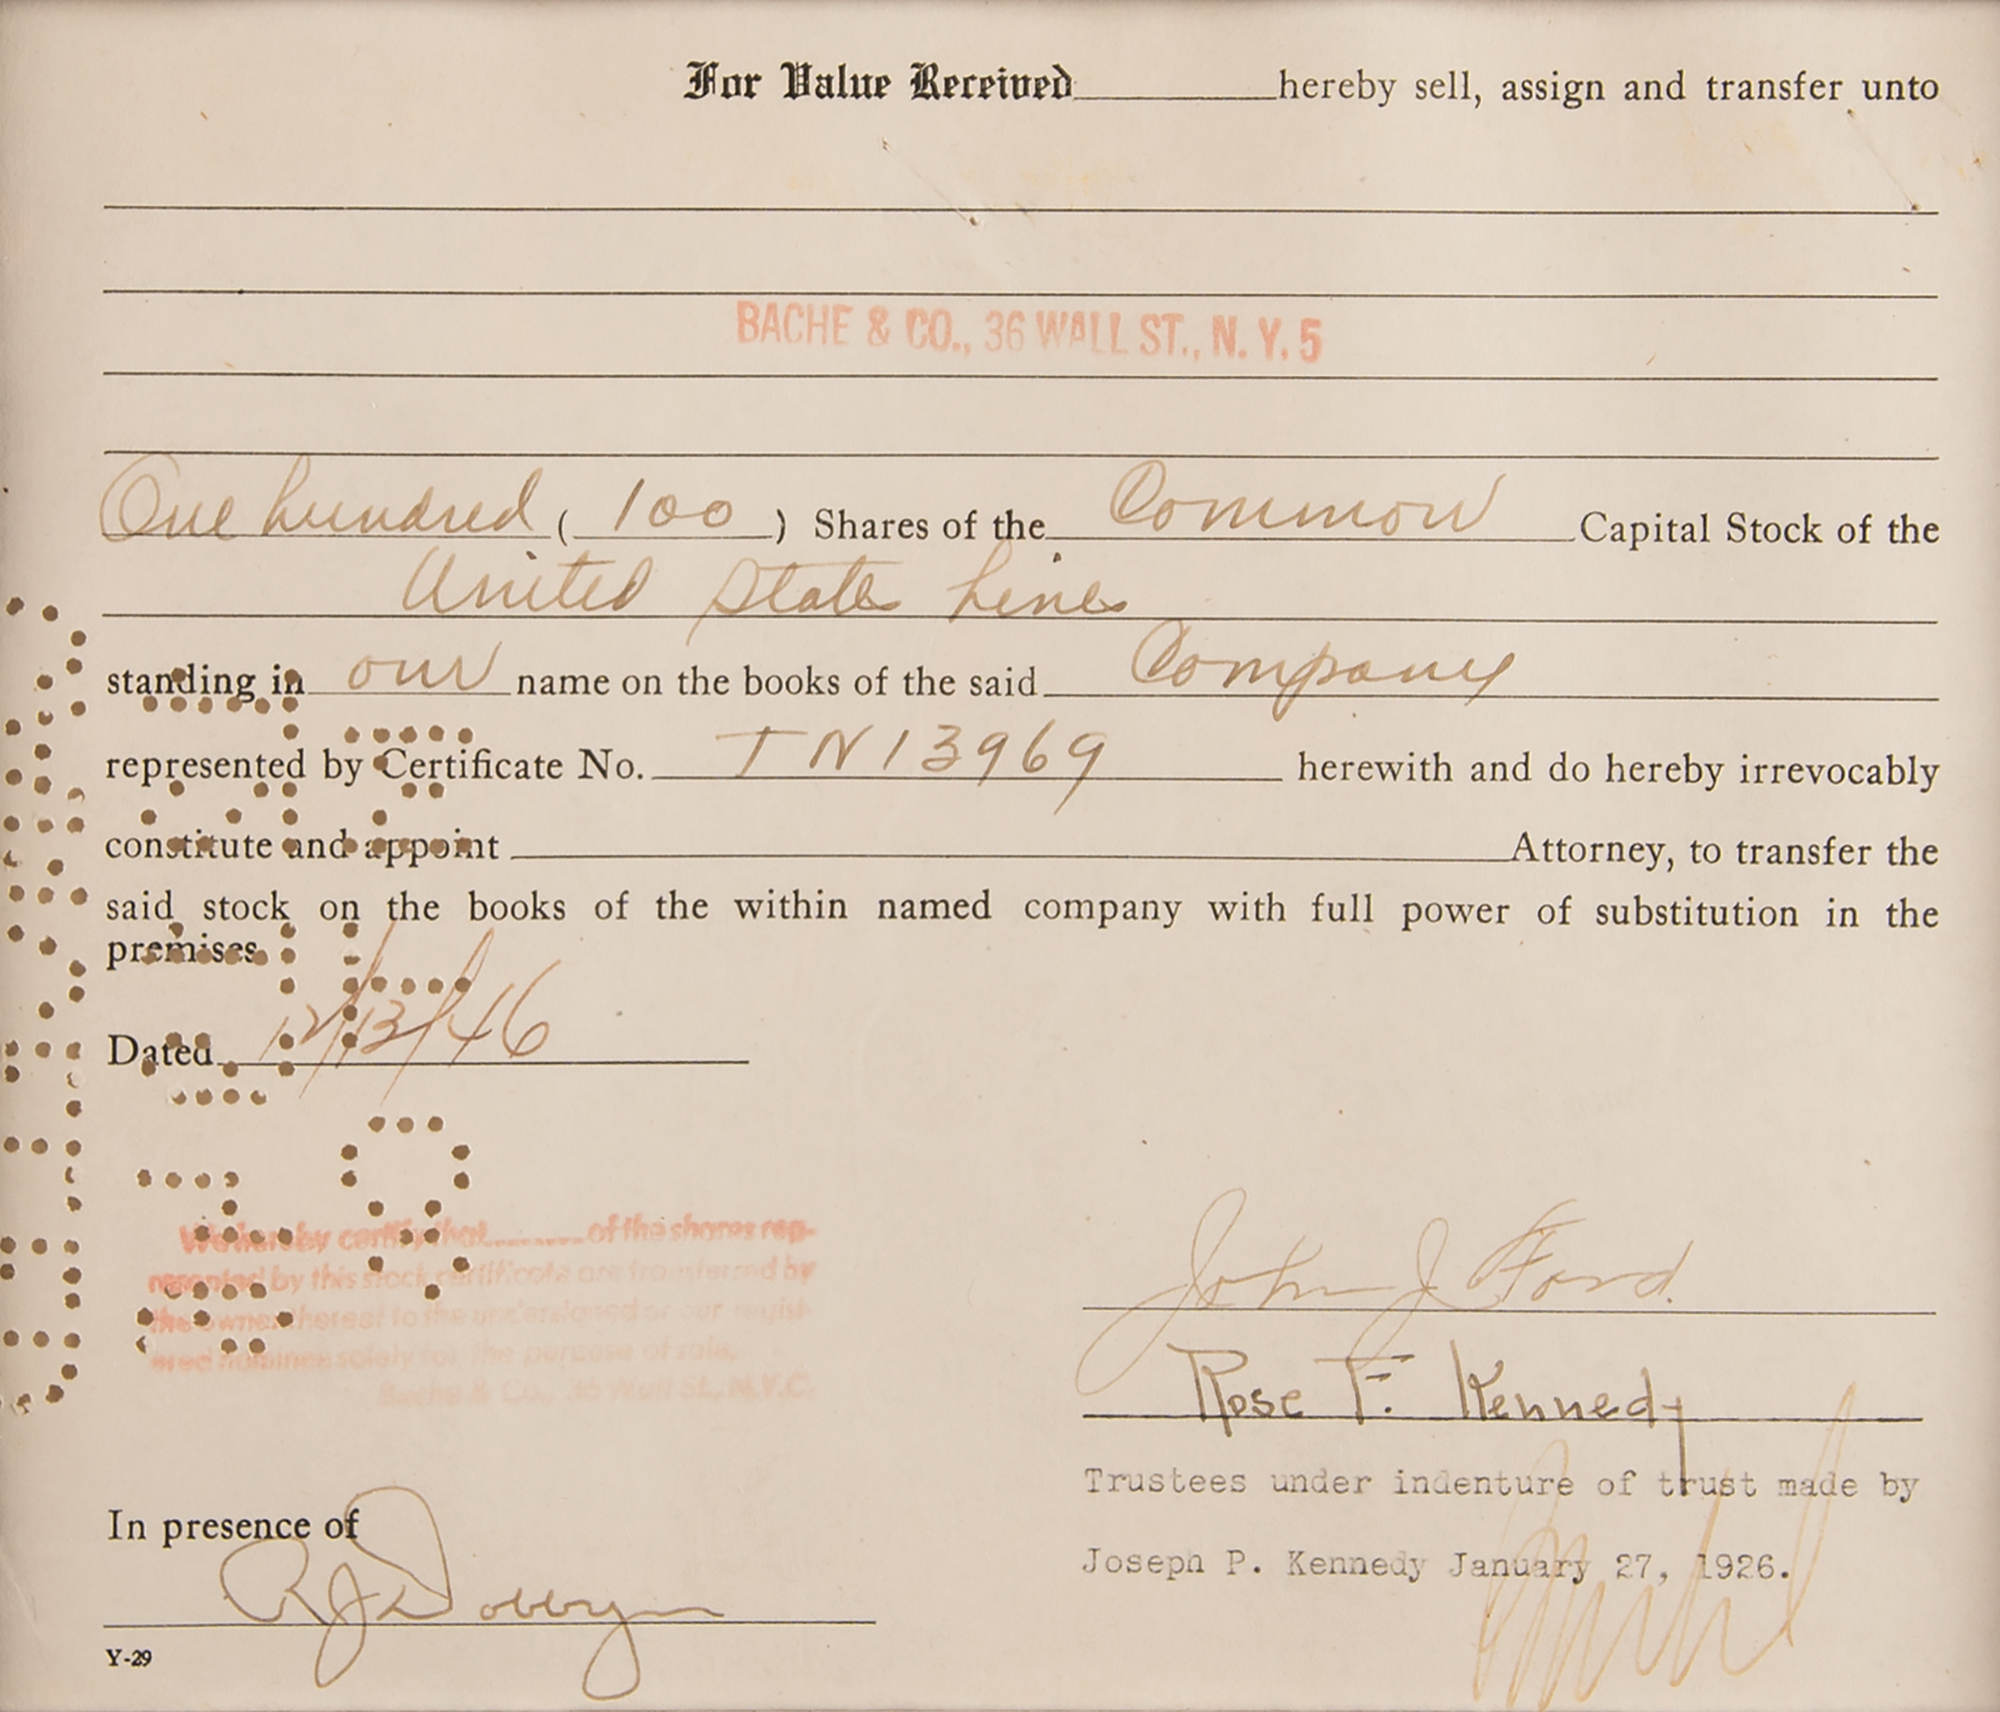 For Value Received hereby sell, assign and transfer unto
BACHE & CO., 36 WALL ST., N. Y. 5
One hundred ( 100 ) Shares of the Common Capital Stock of the
United States Lines
standing in our name on the books of the said Company
represented by Certificate No. TN13969 herewith and do hereby irrevocably
constitute and appoint Attorney, to transfer the
said stock on the books of the within named company with full power of substitution in the
premises.
Dated 12/13/46
We hereby certify that of the shares rep-
resented by this stock certificate are transferred by
the owner thereof to the undersigned or our regist-
ered nominee solely for the purpose of sale.
Bache & Co., 36 Wall St., N.Y.C.
John J Ford
Rose F. Kennedy
Trustees under indenture of trust made by
Joseph P. Kennedy January 27, 1926.
In presence of
Y-29